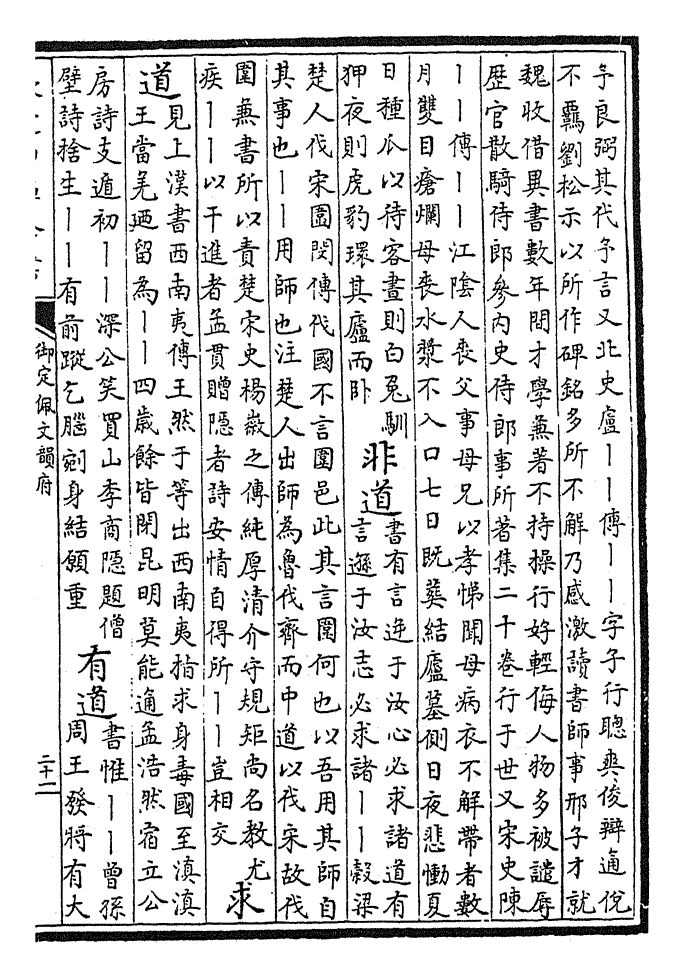 予良弼其代予言又北史盧丨丨傳丨丨字子行聰爽俊辯通侻
不羈劉松示以所作碑銘多所不解乃感激讀書師事邢子才就
魏收借異書數年間才學兼著不持操行好輕侮人物多被譴辱
歷官散騎侍郎參內史侍郎事所著集二十卷行于世又宋史陳
丨丨傳丨丨江陰人喪父事母兄以孝悌聞母病衣不解帶者數
月雙目瘡爛母喪水漿不入口七日既葬結廬墓側日夜悲慟夏
日種瓜以待客晝則白兔馴
狎夜則虎豹環其廬而卧
非道
書有言逆于汝心必求諸道有
言遜于汝志必求諸丨丨穀梁
楚人伐宋圍閔傳伐國不言圍邑此其言圍何也以吾用其師自
其事也丨丨用師也注楚人出師為魯伐齊而中道以伐宋故伐
圍兼書所以責楚宋史楊徽之傳純厚清介守規矩尚名教尤
疾丨丨以干進者孟貫贈隱者詩安情自得所丨丨豈相交
求
道
見上漢書西南夷傳王然于等出西南夷指求身毒國至滇滇
王當羌迺留為丨丨四歲餘皆閉昆明莫能通孟浩然宿立公
房詩支遁初丨丨深公笑買山李商隱題僧
壁詩捨生丨丨有前蹤乞腦剜身結願重
有道
書惟丨丨曾孫
周王發將有大
御定佩文韻府
二十一